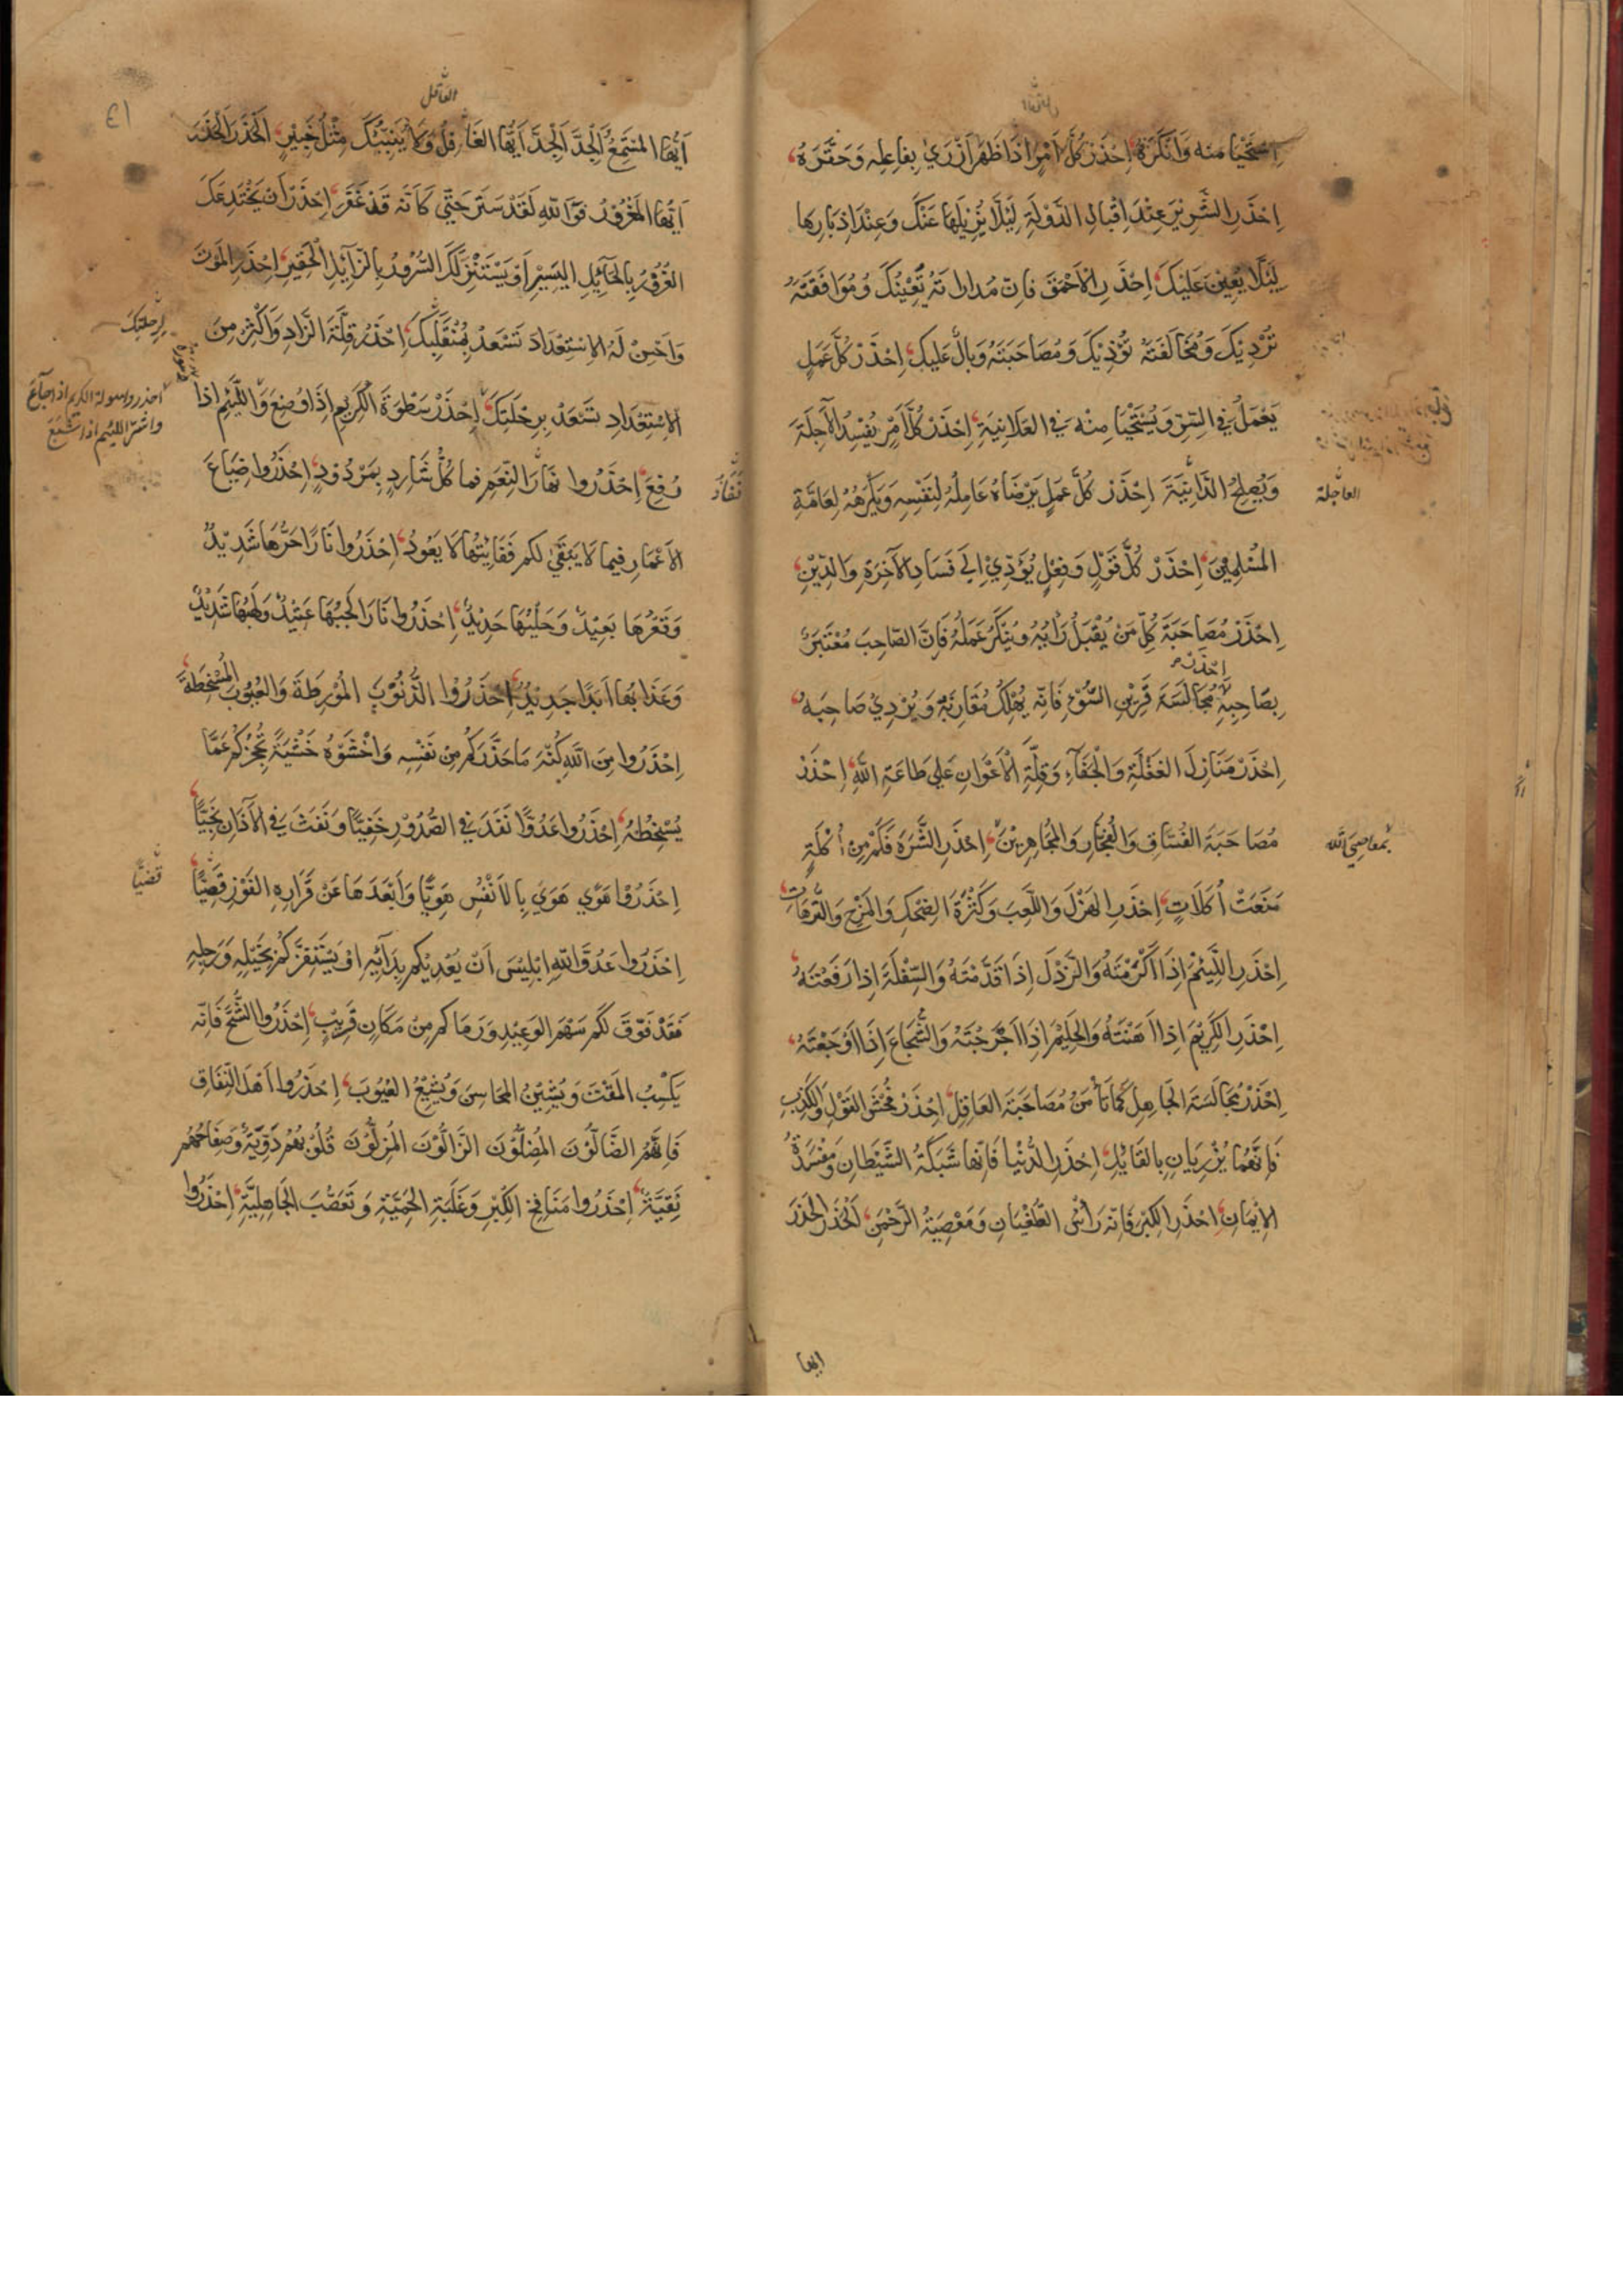 اِسْتَحْيَا مِنه وَانكَرَهُ اِحْذَرْ كُلَّ اَمْرٍ اِذَا ظَهَرَ اَزْرَيٰ بِفَاعِلِه وَحَقَّرَهُ
اِحْذَرِ الشَّرِيْرَ عِنْدَ اِقْبَالِ الدَّوْلَةِ لِئَلَّا يُزِيْلَهَا عَنْكَ وَعِنْدَ اِدْبَارِهَا
لِئَلَّا يُعِيْنَ عَلَيْكَ اِحْذَرِ الْاَحْمَقَ فَاِنَّ مُدَارَاتَهُ تُعْيِيْكَ وَمُوَافَقَتَهُ
تُرْدِيْكَ وَمُخَالَفَتَهُ تُؤْذِيْكَ وَمُصَاحَبَتَهُ وَبَالٌ عَلَيْكَ اِحْذَرْ كُلَّ عَمَلٍ
يَعْمَلُ فِي السِّرِّ وَيُسْتَحْيَا مِنْهُ فِي العَلَانِيَةِ اِحْذَرْ كُلَّ اَمْرٍ يُفْسِدُ الْآجِلَةَ
وَيُصْلِحُ الدَّانِيَةَ اِحْذَرْ كُلَّ عَمَلٍ يَرْضَاهُ عَامِلُهُ لِنَفْسِهِ وَيَكْرَهُهُ لِعَامَّةِ
العاجلة
المُسْلِمِيْنَ اِحْذَرْ كُلَّ قَوْلٍ وَفِعْلٍ يُؤَدِّيْ اِلَي فَسَادِ الآخِرَةِ وَالدِّيْنِ
اِحْذَرْ مُصَاحَبَةَ كُلِّ مَنْ يُقْبَلُ رَأيُهُ وَيُنْكَرُ عَمَلُهُ فَاِنَّ الصَّاحِبَ مُعْتَبَرٌ
اِحْذَرْ
بِصَاحِبِهِ مُجَالَسَةَ قَرِيْنِ السُّوْءِ فَاِنَّه يُهْلِكُ مُقَارِنَهُ وَيُرْدِيْ صَاحِبَهُ
اِحْذَرْ مَنَازِلَ الغَفْلَةِ وَالْجَفَآءِ وَقِلَّةَ الْاَعْوَانِ عَلَي طَاعَةِ اللّٰهِ اِحْذَرْ
مُصَاحَبَةَ الفُسَّاقِ وَالْفُجَّارِ وَالمُجَاهِرِيْنَ اِحْذَرِ الشَّرَهَ فَكَمْ مِنْ اُكْلَةٍ
بمعاصي الله
مَنَعَتْ اُكَلَاتٍ اِحْذَرِ الهَزْلَ وَاللَّعِبَ وَكَثْرَةَ الضِّحْكِ وَالمَزْحِ وَالتُّرَّهَاتِ
اِحْذَرِ اللَّئِيْمَ اِذَا اَكْرَمْتَهُ وَالرَّذْلَ اِذَا قَدَّمْتَهُ وَالسِّفْلَةَ اِذَا رَفَعْتَهُ
اِحْذَرِ الكَرِيْمَ اِذَا اَهَنْتَهُ وَالْحَلِيْمَ اِذَا اَحْرَجْتَهُ وَالشُّجَاعَ اِذَا اَوْجَعْتَهُ
اِحْذَرْ مُجَالَسَةَ الجَاهِلِ كَمَا تَأْمَنُ مُصَاحَبَةَ العَاقِلِ اِحْذَرْ فُحْشَ القَوْلِ وَالْكَذِبِ
فَاِنَّهُمَا يُزْرِيَانِ بِالقَائِلِ اِحْذَرِ الدُّنْيَا فَاِنَّهَا شَبَكَةُ الشَّيْطَانِ وَمَفْسَدَةُ
الاِيْمَانِ اِحْذَرِ الكِبْرَ فَاِنَّهُ رَأسُ الطُّغْيَانِ وَمَعْصِيَةُ الرَّحْمٰنِ اَلْحَذَرَ الْحَذَرَ
ايها
العاقل
اَيُّهَا المُسْتَمِعُ اَلْجِدَّ اَلْجِدَّ اَيُّهَا الغَافِلُ وَلَا يُنَبِّئُكَ مِثْلُ خَبِيْرٍ اَلْحَذَرَ الْحَذَرَ
اَيُّهَا المَغْرُوْرُ فَوَاللّٰهِ لَقَدْ سَتَرَ حَتّٰي كَاَنَّه قَدْ غَفَرَ اِحْذَرْ اَنْ يَخْتَدِعَكَ
الغُرُوْرُ بِالحَآئِلِ اليَسِيْرِ اَوْ يَسْتَنْزِلَكَ السُّرُوْرُ بِالزَّآئِلِ الْحَقِيْرِ اِحْذَرِ المَوْتَ
وَاَحْسِنْ لَهُ الِاسْتِعْدَادَ تَسْعَدْ بِمُنْقَلَبِكَ اِحْذَرْ قِلَّةَ الزَّادِ وَاَكْثِرْ مِنَ
لرحلتك
الاِسْتِعْدَادِ تَسْعَدْ بِرِحْلَتِكَ اِحْذَرْ سَطْوَةَ الْكَرِيْمِ اِذَا وُضِعَ وَاللَّئِيْمِ اِذَا
احذروا صولة الكريم اذا جاع
واشر اللئيم اذا شبع
رُفِعَ اِحْذَرُوا نِفَارَ النِّعَمِ فَمَا كُلُّ شَارِدٍ بِمَرْدُوْدٍ اِحْذَرُوا ضِيَاعَ
نفار
الاَعْمَارِ فِيْمَا لَا يَبْقَي لَكُمْ فَفَائِتُهَا لَا يَعُوْدُ اِحْذَرُوا نَارًا حَرُّهَا شَدِيْدٌ
وَقَعْرُهَا بَعِيْدٌ وَحَلْيُهَا حَدِيْدٌ اِحْذَرُوا نَارًا لَجَبُهَا عَتِيْدٌ وَلَهَبُهَا شَدِيْدٌ
وَعَذَابُهَا اَبَدًا جَدِيْدٌ اِحْذَرُوْا الذُّنُوْبَ الْمُوْرِطَةَ وَالْعُيُوْبَ الْمُسْخِطَةَ
اِحْذَرُوا مِنَ اللّٰهِ كُنْهَ مَا حَذَّرَكُمْ مِنْ نَفْسِهِ وَاخْشَوْهُ خَشْيَةً تَحْجُزُكُمْ عَمَّا
يُسْخِطُهُ اِحْذَرُوا عَدُوًّا نَفَذَ فِي الصُّدُوْرِ خَفِيًّا وَنَفَثَ فِي الآذَانِ نَجِيًّا
اِحْذَرُوْا هَوًي هَوَي بِالاَنْفُسِ هَوِيًّا وَاَبْعَدَهَا عَنْ قَرَارِهِ الفَوْزِ قَصِيًّا
اِحْذَرُوا عَدُوَّ اللّٰهِ اِبْلِيْسَ اَنْ يُعْدِيَكُمْ بِدَآئِهِ اَوْ يَسْتَفِزَّكُمْ بِخَيْلِهِ وَرَجِلِهِ
فَقَدْ فَوَّقَ لَكُمْ سَهْمَ الوَعِيْدِ وَرَمَاكُمْ مِنْ مَكَانٍ قَرِيْبٍ اِحْذَرُوا الشُّحَّ فَاِنَّه
يَكْسِبُ المَقْتَ وَيُشِيْنُ المَحَاسِنَ وَيُشِيْعُ العُيُوْبَ اِحْذَرُوا اَهْلَ النِّفَاقِ
فَاِنَّهُمُ الضَّالُّوْنَ المُضِلُّوْنَ الزَّالُّوْنَ المُزِلُّوْنَ قُلُوْبُهُمْ دَوِيَّةٌ وَصِفَاحُهُمْ
نَقِيَّةٌ اِحْذَرُوا مَنَافِخَ الكِبْرِ وَغَلَبَةَ الحَمِيَّةِ وَتَعَصُّبَ الجَاهِلِيَّةِ اِحْذَرُوا